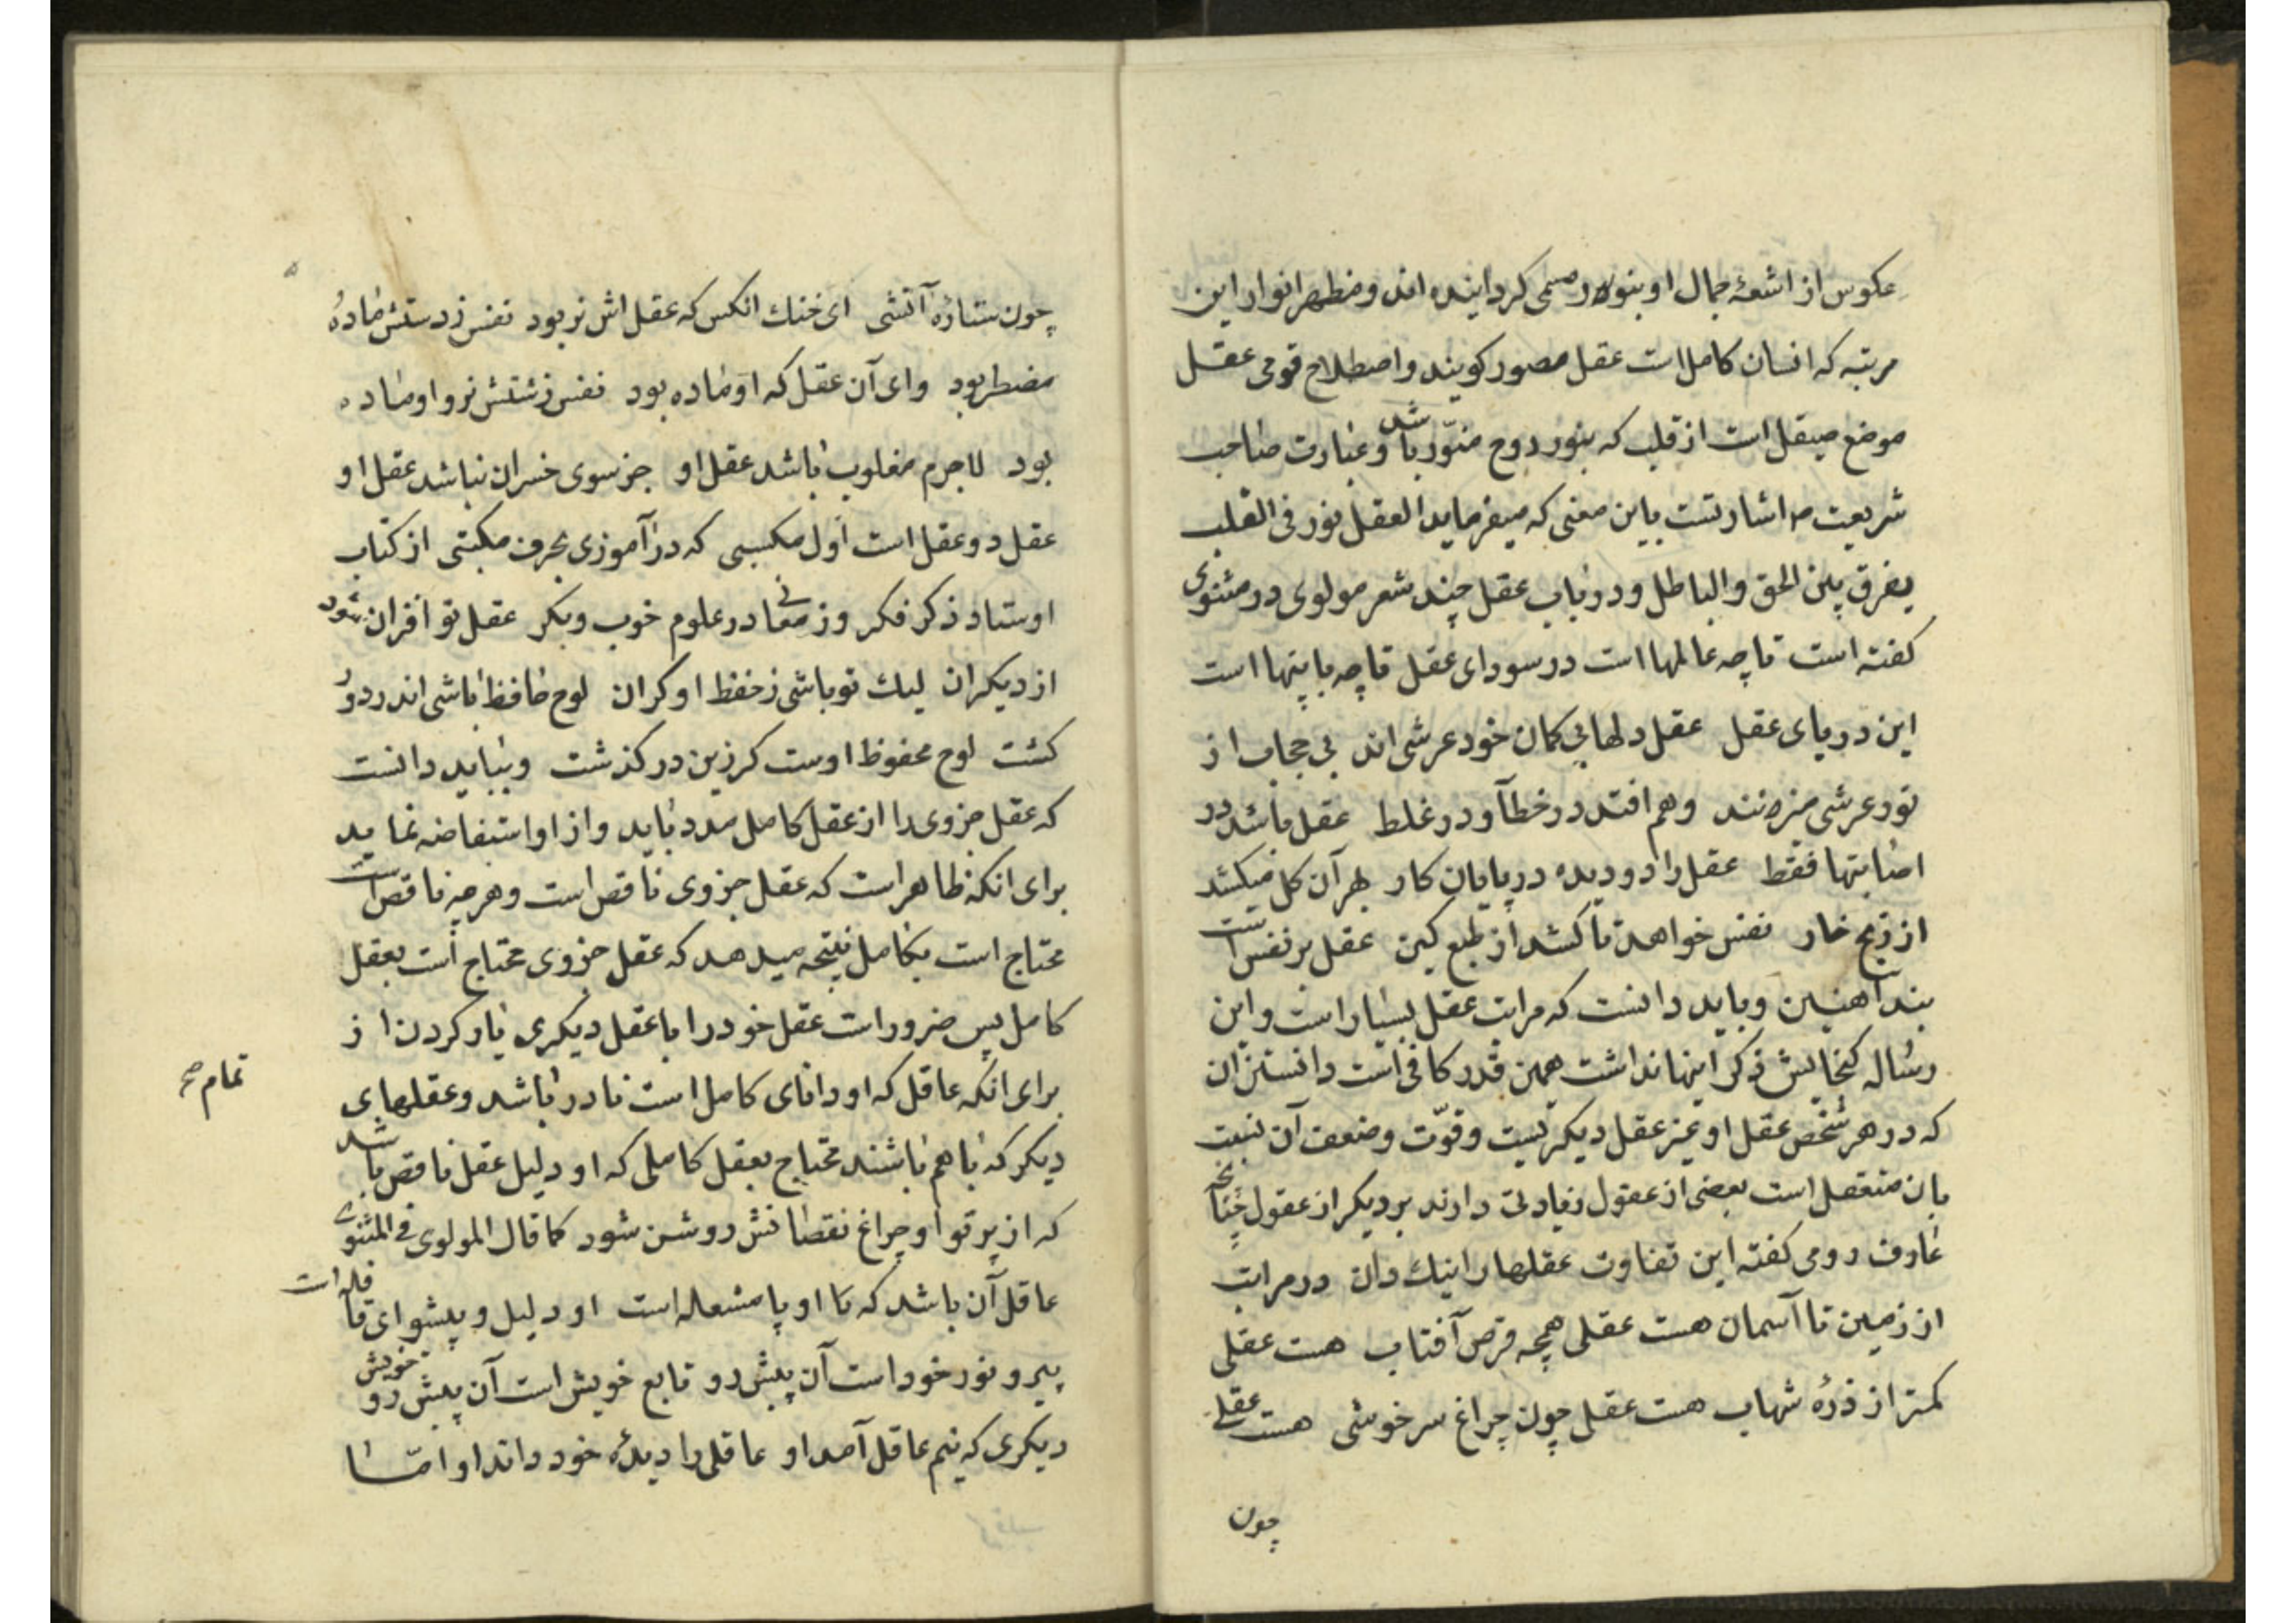 عکوس از اشعهٔ جمال او بنور مسمی کردانیده اند و مظهر انوار این
مرتبه که انسان کامل است عقل مصور کویند و اصطلاح قومی عقل
موضع صیقل است از قلب که بنور روح منوّر باشد و عبارت صاحب
شریعت م اشارتست باین معنی که میفرماید العقل نور فی القلب
یفرق بین الحق و الباطل و در باب عقل چند شعر مولوی در مثنوی
کفته است تا چه عالمها است در سودای عقل تا چه با پنها است
این دریای عقل عقل دلها بی کمان خود عرشی اند بی حجاب از
نور عرشی منزهنند وهم افتد در خطا و در غلط عقل باشد در
اصابتها فقط عقل را دو دیده در پایان کار بهر آن کل میکشد
از رنج خار نفس خواهد تا کشد از طبع کین عقل بر نفس است
بند آهنین و باید دانست که مراتب عقل بسیار است و این
رساله کنجایش ذکر اینها نداشت همین قدر کافی است دانستن آن
که در هر شخص عقل او غیر عقل دیکر نیست و قوّت و ضعف آن نسبت
بان منعقل است بعضی از عقول زیادتی دارند بر دیکر از عقول چنانچه
عارف رومی کفته این تفاوت عقلها را نیك دان در مراتب
از زمین تا آسمان هست عقلی همچه قرص آفتاب هست عقلی
کمتر از ذرهٔ شهاب هست عقلی چون چراغ سرخوشی هست عقلی
چون
۵
چون ستارهٔ آتشی ای خنك انکس که عقل اش نر بود نفس زشتش مادهٔ
مضطر بود وای آن عقل که او ماده بود نفس زشتش نر و او ماده
بود لاجرم مغلوب باشد عقل او جز سوی خسران نباشد عقل او
عقل دو عقل است اول مکسبی که در آموزی بحرف مکتبی از کتاب
اوستاد ذکر فکر وز معانی در علوم خوب و بکر عقل تو افزان شود
از دیکران لیك تو باشی ز حفظ او کران لوح حافظ باشی اندر دور
کشت لوح محفوظ اوست کرزین در کذشت و بباید دانست
که عقل جزوی را از عقل کامل مدد باید و از او استفاضه نماید
برای انکه ظاهر است که عقل جزوی ناقص است و هر چه ناقص است
محتاج است بکامل نتیجه میدهد که عقل جزوی محتاج است بعقل
کامل پس ضرور است عقل خود را با عقل دیکری یار کردن از
برای انکه عاقل که او دانای کامل است نادر باشد و عقلهای
تمام صح
دیکر که با هم باشند محتاج بعقل کاملی که او دلیل عقل ناقص باشد
که از پرتو او چراغ نقصانش روشن شود کما قال المولوی فی المثنوی
عاقل آن باشد که با او پا مشعله است او دلیل و پیشوای قافله است
پیرو نور خود است آن پیش رو تابع خویش است آن پیش رو خویش
دیکری که نیم عاقل آمد او عاقلی را دیدهٔ خود داند او امّا